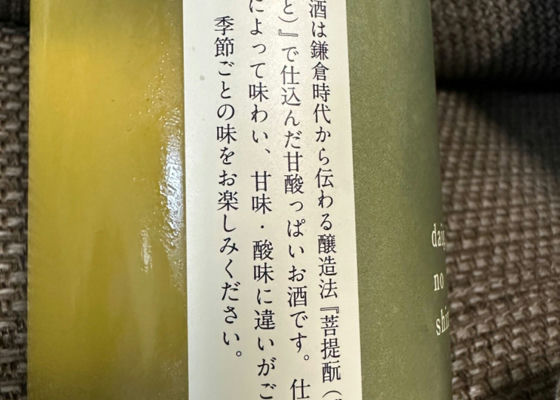 酒は鎌倉時代から伝わる醸造法『菩提酛（
と）』で仕込んだ甘酸っぱいお酒です。仕
によって味わい、甘味・酸味に違いがご
季節ごとの味をお楽しみください。
dai
no
shi